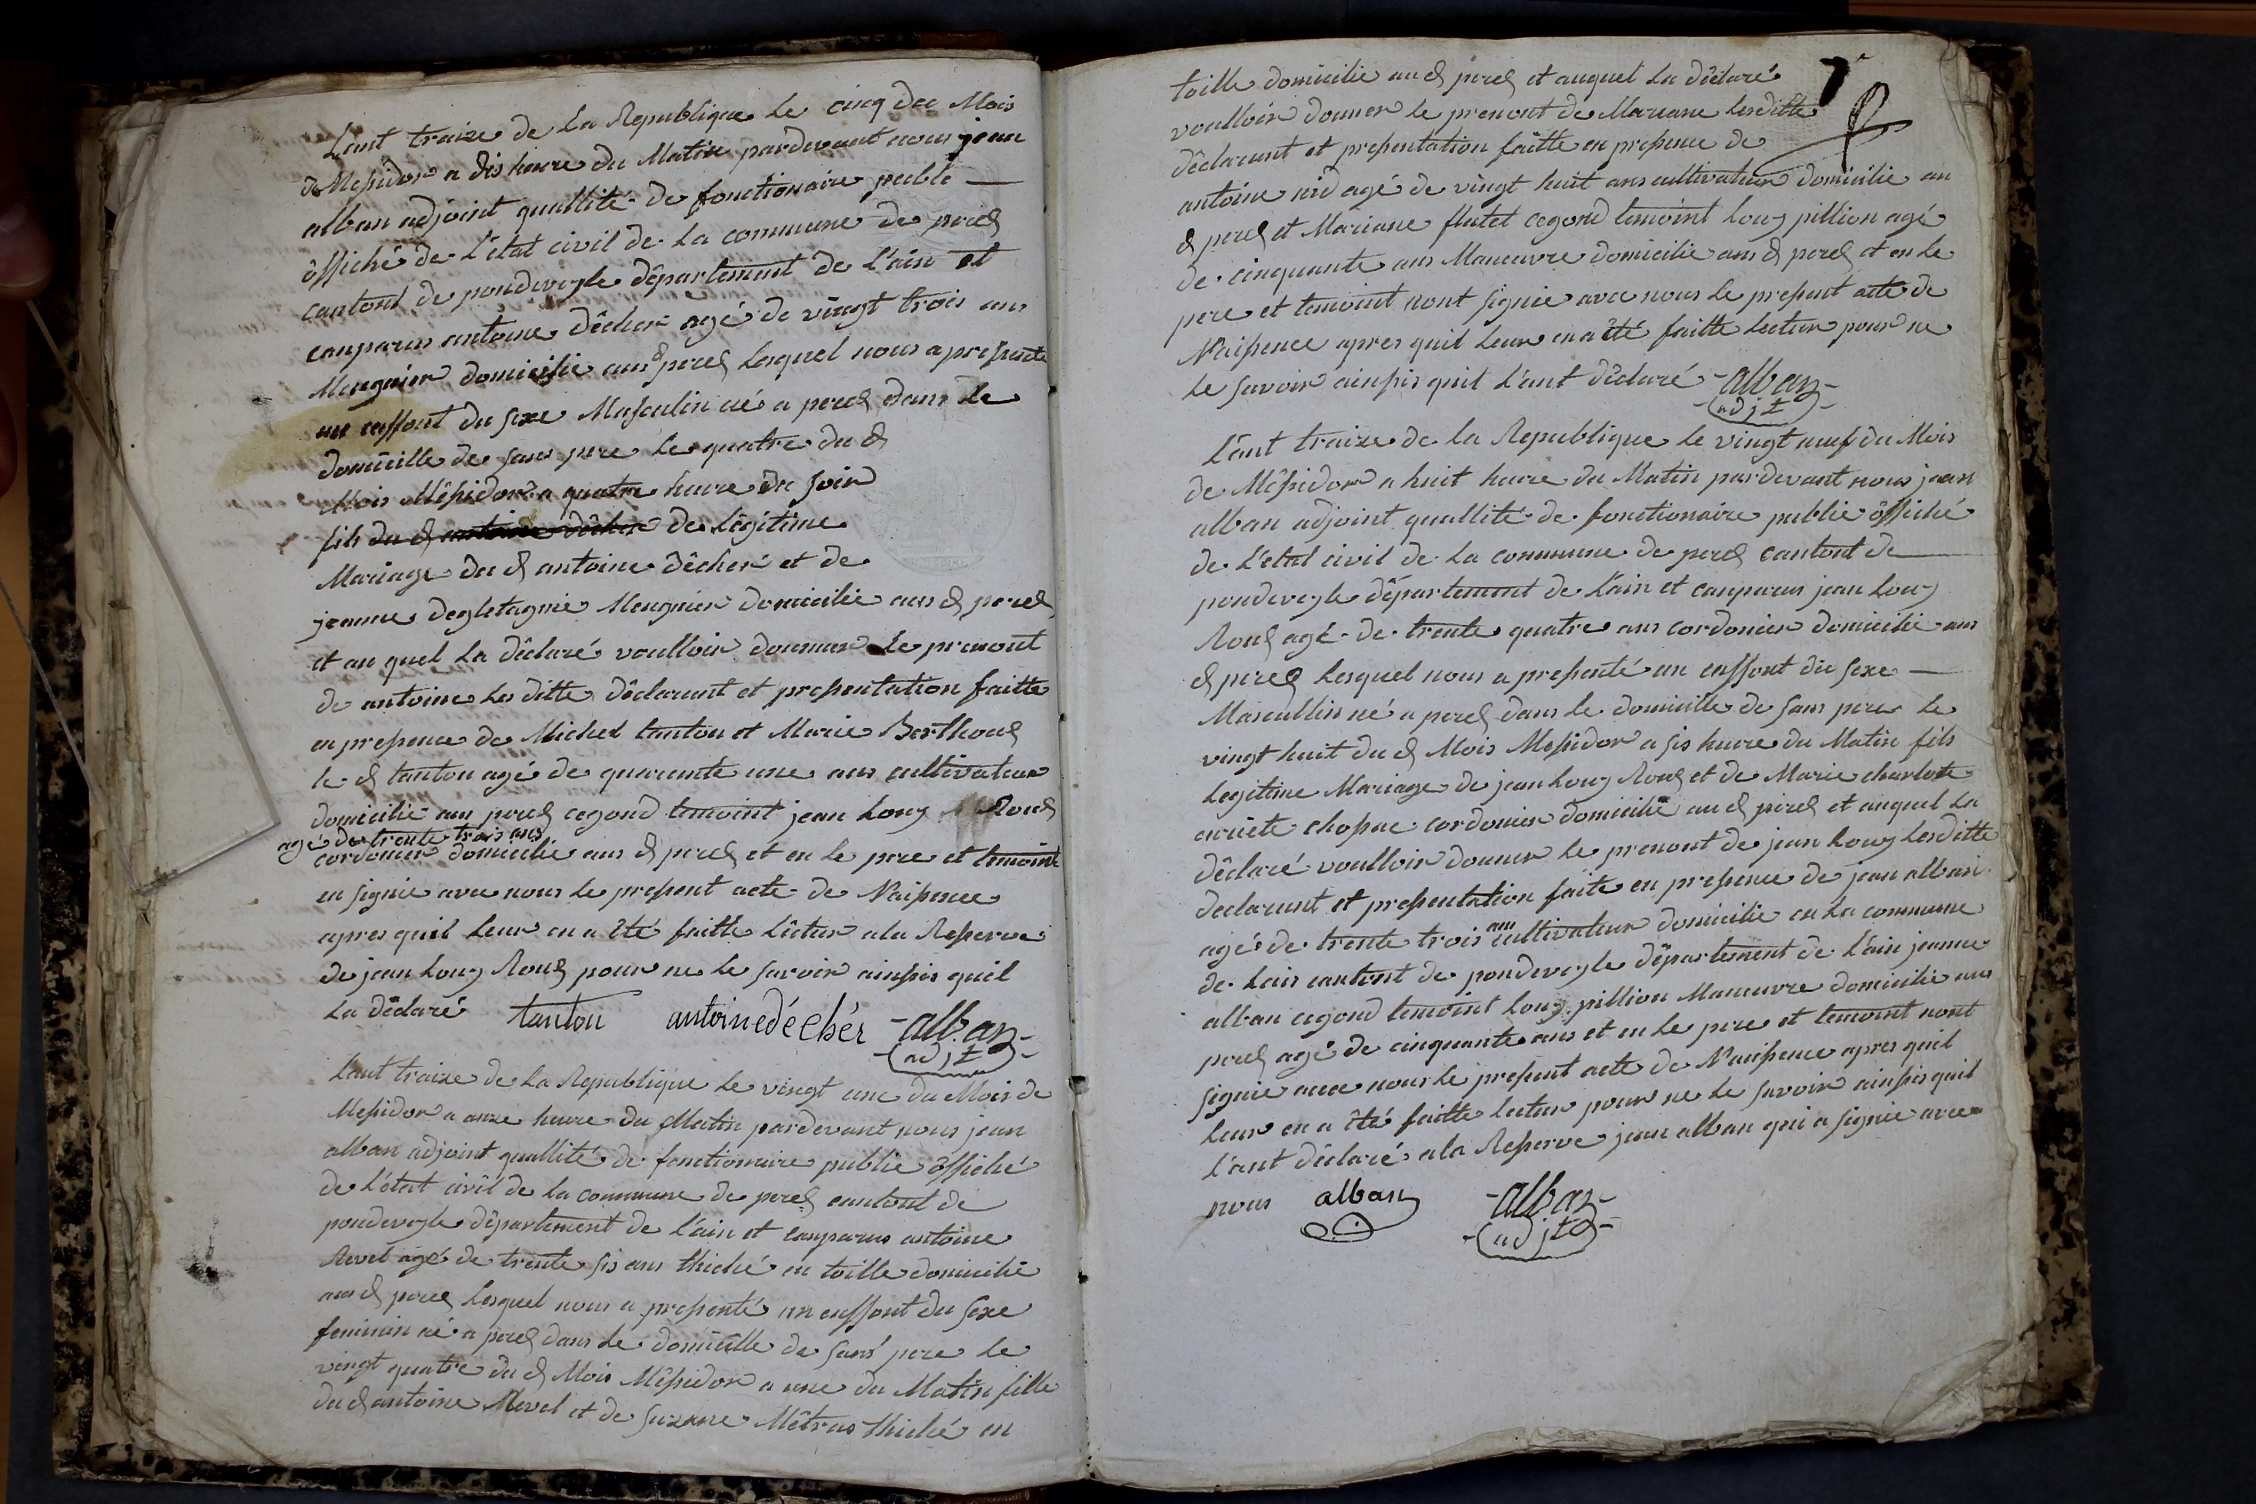 L'ant traize de la Republique le cinq du Mois
de Messidor a dis heure du Matin pardevant nous jean
alban adjoint quallité de fonctionaire publi
ôffiché de l'état civil de la commune de perex
cantont de pondeveyle département de l'ain et
conparus antoine dêcher agé de vingt trois ans
Meugnier domicilie aus d perex lesquel nous a presente
un enffont du sexe Masculin né a perex dans le
domicille de sans pere le quatre du d
Mois Mêssidor a quatre heure du soir
fils du d antoine dêcher de lêgitime
Mariage du d antoine dêcher et de
jeanne degletagnie Meugnier domicilie aus d perex
et au quel la dêclaré voulloir donner le prenont
de antoine les ditte dêclarant et presentation faitte
en presence de Michel tanton et Marie Berthoux
le d tanton agé de quarante une ans cultivateur
domicilié aus perex cegond temoint jean Louy Roux
agé de trente trois ans
cordonier domicilie aus d perex et en le pere et temoint
en signie avec nous le present acte de Naissence
apres quil leur en a êté faitte lêcture a la Reserve
de jean Louy Roux pour ne le savoir ainsis quil
la dêclaré tanton antoine déchér alban
adjt
L'ant traize de la Republique le vingt une du Mois de
Messidor a onze heure du Matin pardevant nous jean
alban adjoint quallité de fonctionaire public ôffiché
de l'état civil de la commune de perex cantont de
pondeveyle département de l'ain et conparus antoine
Revel agé de trente sis ans thiché en toille domicilié
aus d perex lesquel nous a presenté un enffont du sexe
feminin né a perex dans le domicille de sans pere le
vingt quatre du d Mois Mêssidor a une du Matin fille
du d antoine Revel et de suzane Mêtras thiché en
7e
toille domicilie au d perex et auquel la dêclaré
voulloir donner le prenont de Mariane lesditte
dêclarant et presentation faitte en presence de
antoine agé de vingt huit ans cultivateur domicilie au
d perex et Mariane flutet cegond temoint Louy pillion agé
de cinquante ans Maneuvre domicilie aus d perex et en le
pere et temoint nont signie avec nous le present acte de
Naissence apres quil leur en a êté faitte lecture pour ne
le savoir ainssis quil l'ant dêclaré alban
adjt
L'ant traize de la Republique le vingt neuf du Mois
de Mêssidor a huit heure du Matin pardevant nous jean
alban adjoint quallité de fonctionaire public ôffiché
de l'état civil de la commune de perex cantont de
pondeveyle département de l'ain et conparus jean Louy
Roux agé de trente quatre ans cordonier domicilié aus
d perex lesquel nous a presenté un enffont du sexe
Mascullin né a perex dans le domicille de sans pere le
vingt huit du d Mois Messidor a sis heure du Matin fils
legitime Mariage de jean Louy Roux et de Marie charlote
chopne cordonier domicilié au d perex et auquel la
dêclaré voulloir donner le prenont de jean Louy lesditte
declarant et presentation faite en presence de jean alban
agé de trente trois ans cultivateur domicilie en la commune
de Lais cantont de pondeveyle département de l'ain jeanne
alban cegond temoint Louy pillion Maneuvre domicilie aus
perex agé de cinquante ans et en le pere et temoint nont
signie avec nous le present acte de Naissence apres quil
leur en a êté faitte lecture pour ne le savoir ainsis quil
l'ant dêclaré a la Reserve jean alban qui a signie avec
nous alban alban
adjt